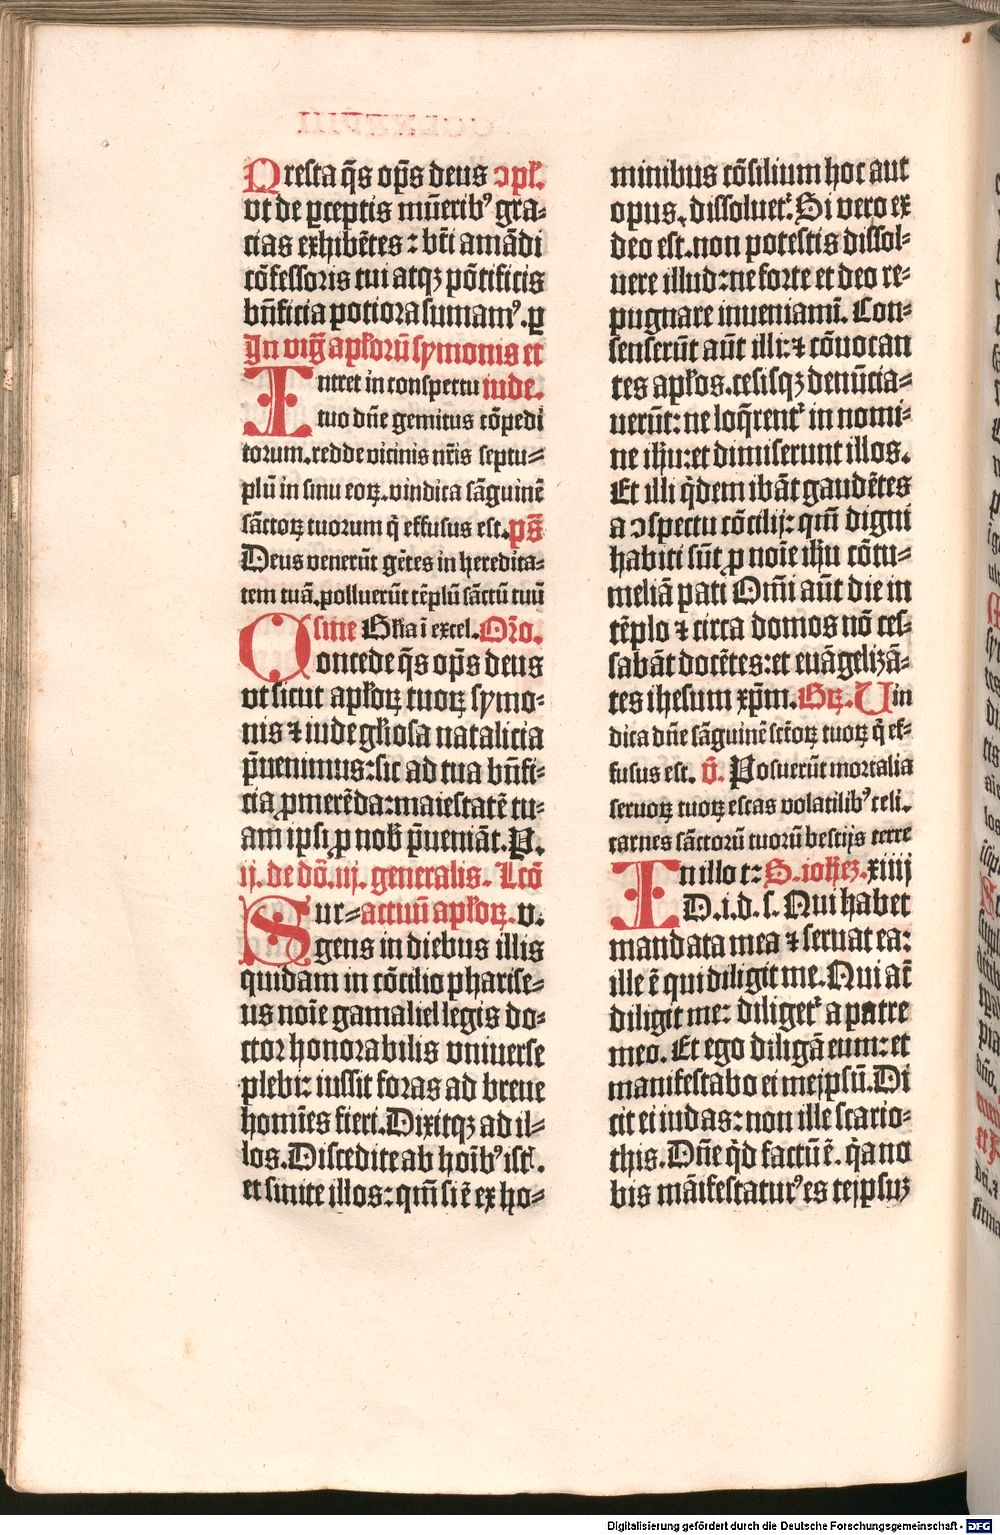 Presta q̃s op̃s deus ↄpl̃.
vt de ꝑceptis mũerib⁹ gra⸗
cias exhibẽtes : bt̃i amãdi
cõfessoris tui atqꝫ põtificis
bñficia potiora sumam⁹. ꝑ
In vig̃ apl̃oꝛũ symonis et
Intret in conspectu iude.
tuo dñe gemitus cõpedi
torum. redde vicinis nr̃is septu⸗
plũ in sinu eoꝝ. vindica sãguinẽ
sãctoꝝ tuorum q̃ effusus est. ps̃
Deus venerũt gẽtes in heredita⸗
tem tuã. polluerũt tẽplũ sãctũ tuũ
sine Gl̃ia ĩ excel. Or̃o.
Concede q̃s op̃s deus
vt sicut apl̃oꝝ tuoꝝ symo⸗
nis ⁊ iude gl̃iosa natalicia
p̃uenimus: sic ad tua bñfi⸗
cia ꝓmerẽda: maiestatẽ tu⸗
am ipsi ꝓ nob̃ p̃ueniãt. P.
ij. de dõ. iij. generalis. Lcõ
Sur⸗ actuũ apl̃oꝝ. v.
gens in diebus illis
quidam in cõcilio pharise⸗
us noĩe gamaliel legis do⸗
ctor honorabilis vniuerse
plebi: iussit foras ad breue
homĩes fieri. Dixitqꝫ ad il⸗
los. Discedite ab hoĩb⁹ ist̃.
et sinite illos: qm̃ si ẽ ex ho⸗
minibus cõsilium hoc aut
opus. dissoluet᷑. Si vero ex
deo est. non potestis dissol⸗
uere illud: ne forte et deo re⸗
pugnare inueniamĩ. Con⸗
senserũt aũt illi: ⁊ cõuocan
tes apl̃os. cesisqꝫ denũcia⸗
uerũt: ne loq̃rent᷑ in nomi⸗
ne ih̃u: et dimiserunt illos.
Et illi q̇dem ibãt gaudẽtes
a ↄspectu cõcilij: qm̃ digni
habiti sũt ꝓ noĩe ih̃u cõtu⸗
meliã pati Om̃i aũt die in
tẽplo ⁊ circa domos nõ ces⸗
sabãt docẽtes: et euãgelizã⸗
tes ihesum xp̃m. Gꝝ. Vin
dica dñe sãguinẽ sctõꝝ tuoꝝ q̃ ef⸗
fusus est. v̄. Posuerũt mortalia
seruoꝝ tuoꝝ escas volatilib⁹ celi.
carnes sãctorũ tuorũ bestijs terre
In illo t: S. ioh̃eꝫ. xiiij
D. i. d. s. Qui habet
mandata mea ⁊ seruat ea:
ille ẽ qui diligit me. Qui at̃
diligit me: diliget᷑ a patre
meo. Et ego diligã eum: et
manifestabo ei meipsũ. Di
cit ei iudas: non ille scario⸗
this. Dñe q̇d factũ ẽ. q̇a no
bis mãifestatur⁹ es teipsuꝫ
Digitalisierung gefördert durch die Deutsche Forschungsgemeinschaft - DFG